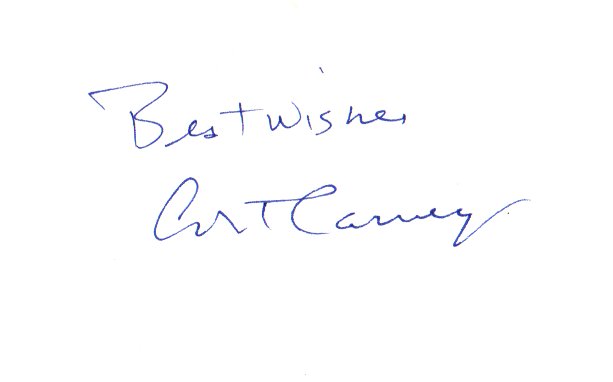 Best Wishes
Art Carney